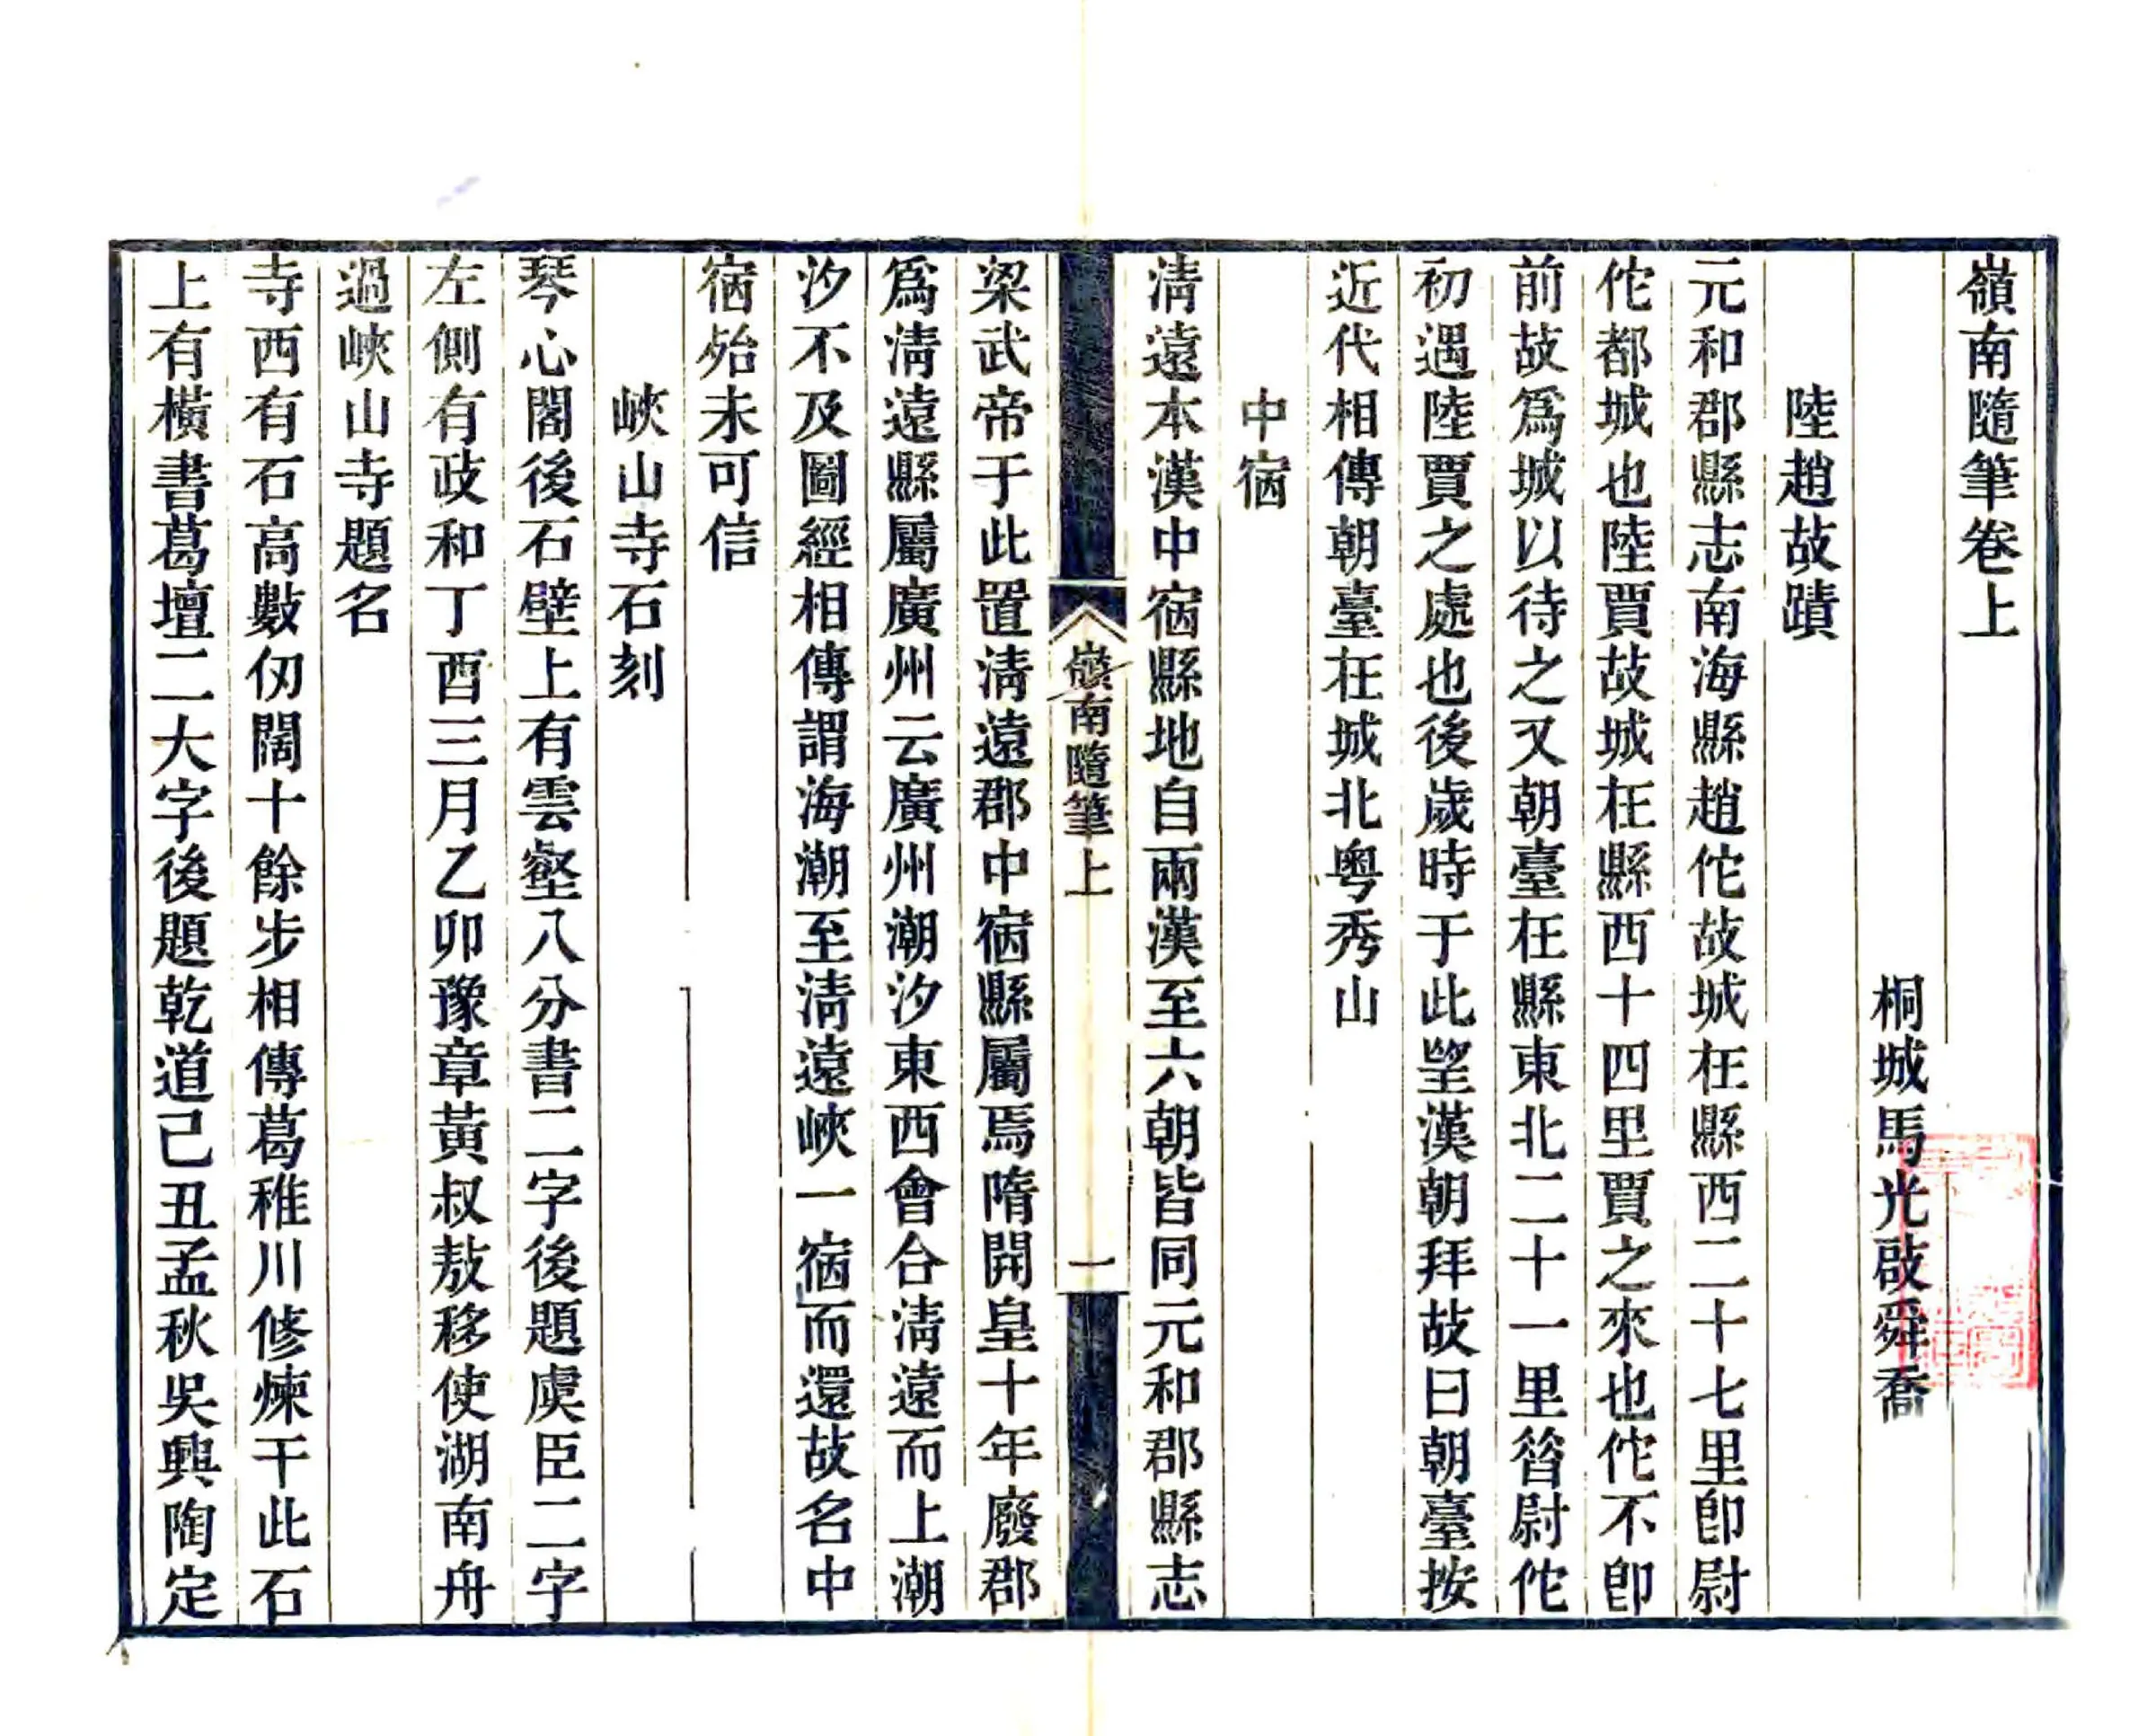 嶺南隨筆卷上
桐城馬光啟舜喬
陸趙故蹟
元和郡縣志南海縣趙佗故城在縣西二十七里卽尉
佗都城也陸賈故城在縣西十四里賈之來也佗不卽
前故爲城以待之又朝臺在縣東北二十一里昝尉佗
初遇陸賈之處也後歲時于此望漢朝拜故曰朝臺按
近代相傳朝臺在城北粤秀山
中宿
淸遠本漢中宿縣地自兩漢至六朝皆同元和郡縣志
嶺南隨筆上
一
梁武帝于此置淸遠郡中宿縣屬焉隋開皇十年廢郡
爲淸遠縣屬廣州云廣州潮汐東西會合淸遠而上潮
汐不及圖經相傳謂海潮至淸遠峽一宿而還故名中
宿殆未可信
峽山寺石刻
琴心閣後石壁上有雲壑八分書二字後題虞臣二字
左側有政和丁酉三月乙卯豫章黃叔敖移使湖南舟
過峽山寺題名
寺西有石高數仞闊十餘步相傳葛稚川修煉于此石
上有橫書葛壇二大字後題乾道己丑孟秋吳興陶定